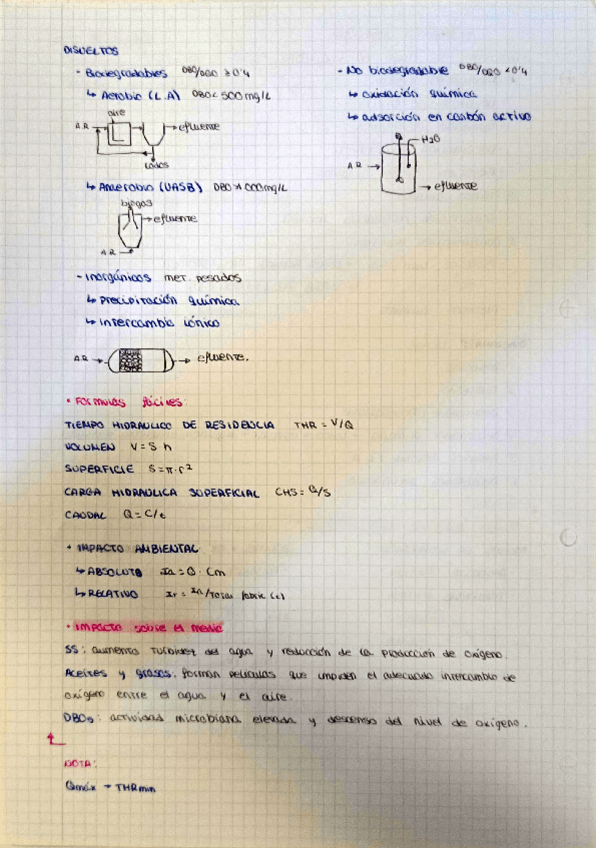 DISUELTOS
- Biodegradables DBO/DQO ≥ 0'4
↳ Aerobio (L.A) DBO < 500 mg/L
aire
A.R
efluente
lodos
↳ Anaerobio (UASB) DBO
biogas
efluente
A.R
- No biodegradable DBO/DQO < 0'4
↳ oxidación química
↳ adsorción en carbón activo
H2O
A.R
efluente
- Inorgánicos met. pesados
↳ Precipitación química
↳ Intercambio iónico
A.R → → efluente.
• Formulas fáciles:
TIEMPO HIDRAULICO DE RESIDENCIA THR = V/Q
VOLUMEN V = S h
SUPERFICIE S = π·r²
CARGA HIDRAULICA SUPERFICIAL CHS = Q/S
CAUDAL Q = C/t
• IMPACTO AMBIENTAL
↳ ABSOLUTO Ia = Q · Cm
↳ RELATIVO Ir = Ia/Total fabric (t)
• Impacto sobre el medio
SS: aumento turbidez del agua y reducción de la producción de oxígeno.
Aceites y grasas: forman películas que impiden el adecuado intercambio de
oxígeno entre el agua y el aire.
DBO5: actividad microbiana elevada y descenso del nivel de oxígeno.
NOTA:
Qmáx → THRmin